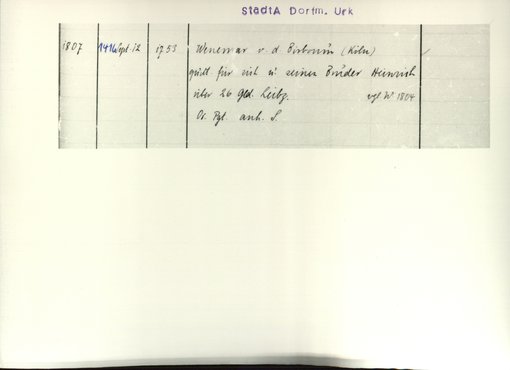 StadtA Dortm. Urk
1807 1416 Sept. 12 1753 Wenemar v. d. Borbourn (Köln)
quitt. für sich u. seinen Bruder Heinrich
über 26 Gld. Leibz. vgl. Nr 1804
Or. Pgt. anh. S.